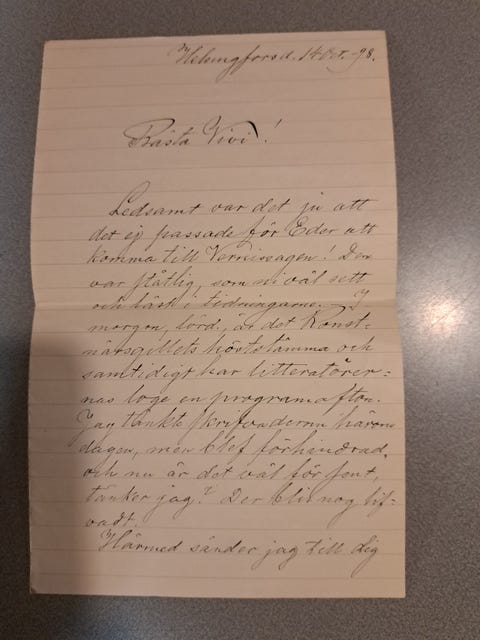 Helsingfors d. 14 Oct. -98.
Bästa Vivi!
Ledsamt var det ju att
det ej passade för Eder att
komma till Vernissagen! Den
var ståtlig, som ni väl sett
och läst i tidningarne. I
morgon, lörd., är det Konst-
närsgillets höststämma och
samtidigt har litteratörer-
nas loge en programafton.
Jag tänkte derom häron
dagen, men blef förhindrad,
och nu är det väl för sent,
tänker jag? Der blir nog lif-
vadt.
Härmed sänder jag till dig